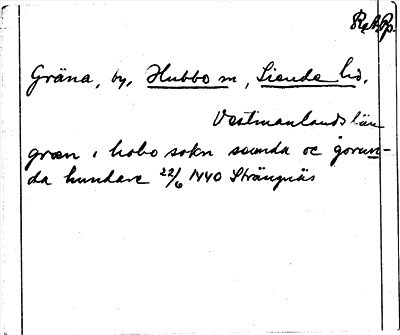 Rep.
Gräna, by, Hubbo sn, Siende hd,
Vestmanlands län
græn i hobo sokn səunda oc gorun-
da hundare 22/6 1440 Strängnäs